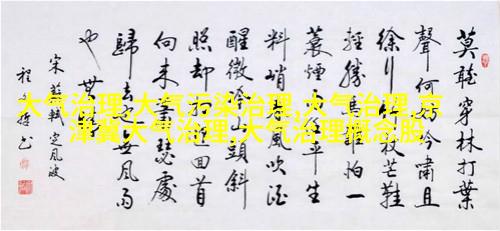 大气治理,大气污染治理,大气治理,京
津冀大气治理,大气治理概念股,
莫聽穿林打葉
聲何妨吟嘯且
徐行竹杖芒鞋
輕勝馬誰怕一
蓑煙雨任平生
料峭春風吹酒
醒微冷山頭斜
照却相迎回首
向来蕭瑟處
歸去也無風雨
也無晴
宋蘇軾定風波
程 书